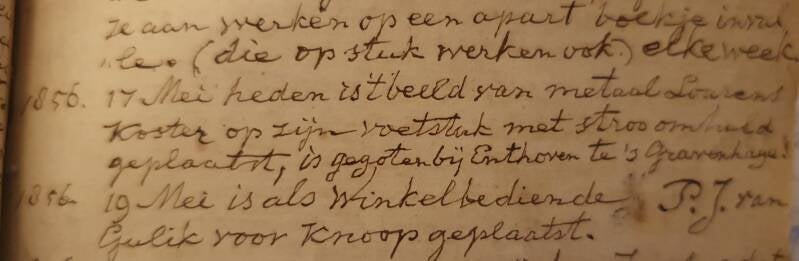 ze aan werken op een apart boekje invul
le. (die op stuk werken ook.) elke week.
1856. 17 Mei heden is't beeld van metaal Lourens
Koster op zijn voetstuk met stroo omhuld
geplaatst, is gegoten bij Enthoven te 's Gravenhage.
1856. 19 Mei is als winkelbediende P. J. van
Gulik voor Knoop geplaatst.